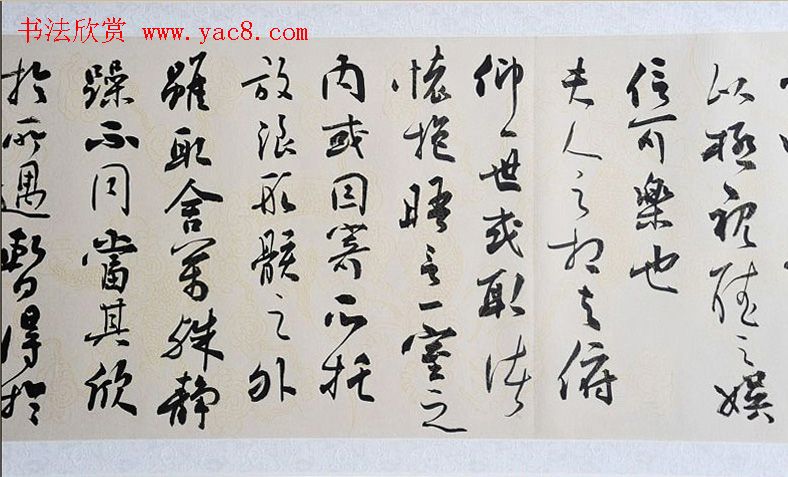 书法欣赏 www.yac8.com
以極視聽之娛
信可樂也
夫人之相与俯
仰一世或取諸
懷抱晤言一室之
內或因寄所托
放浪形骸之外
雖取舍萬殊静
躁不同當其欣
於所遇暫得於